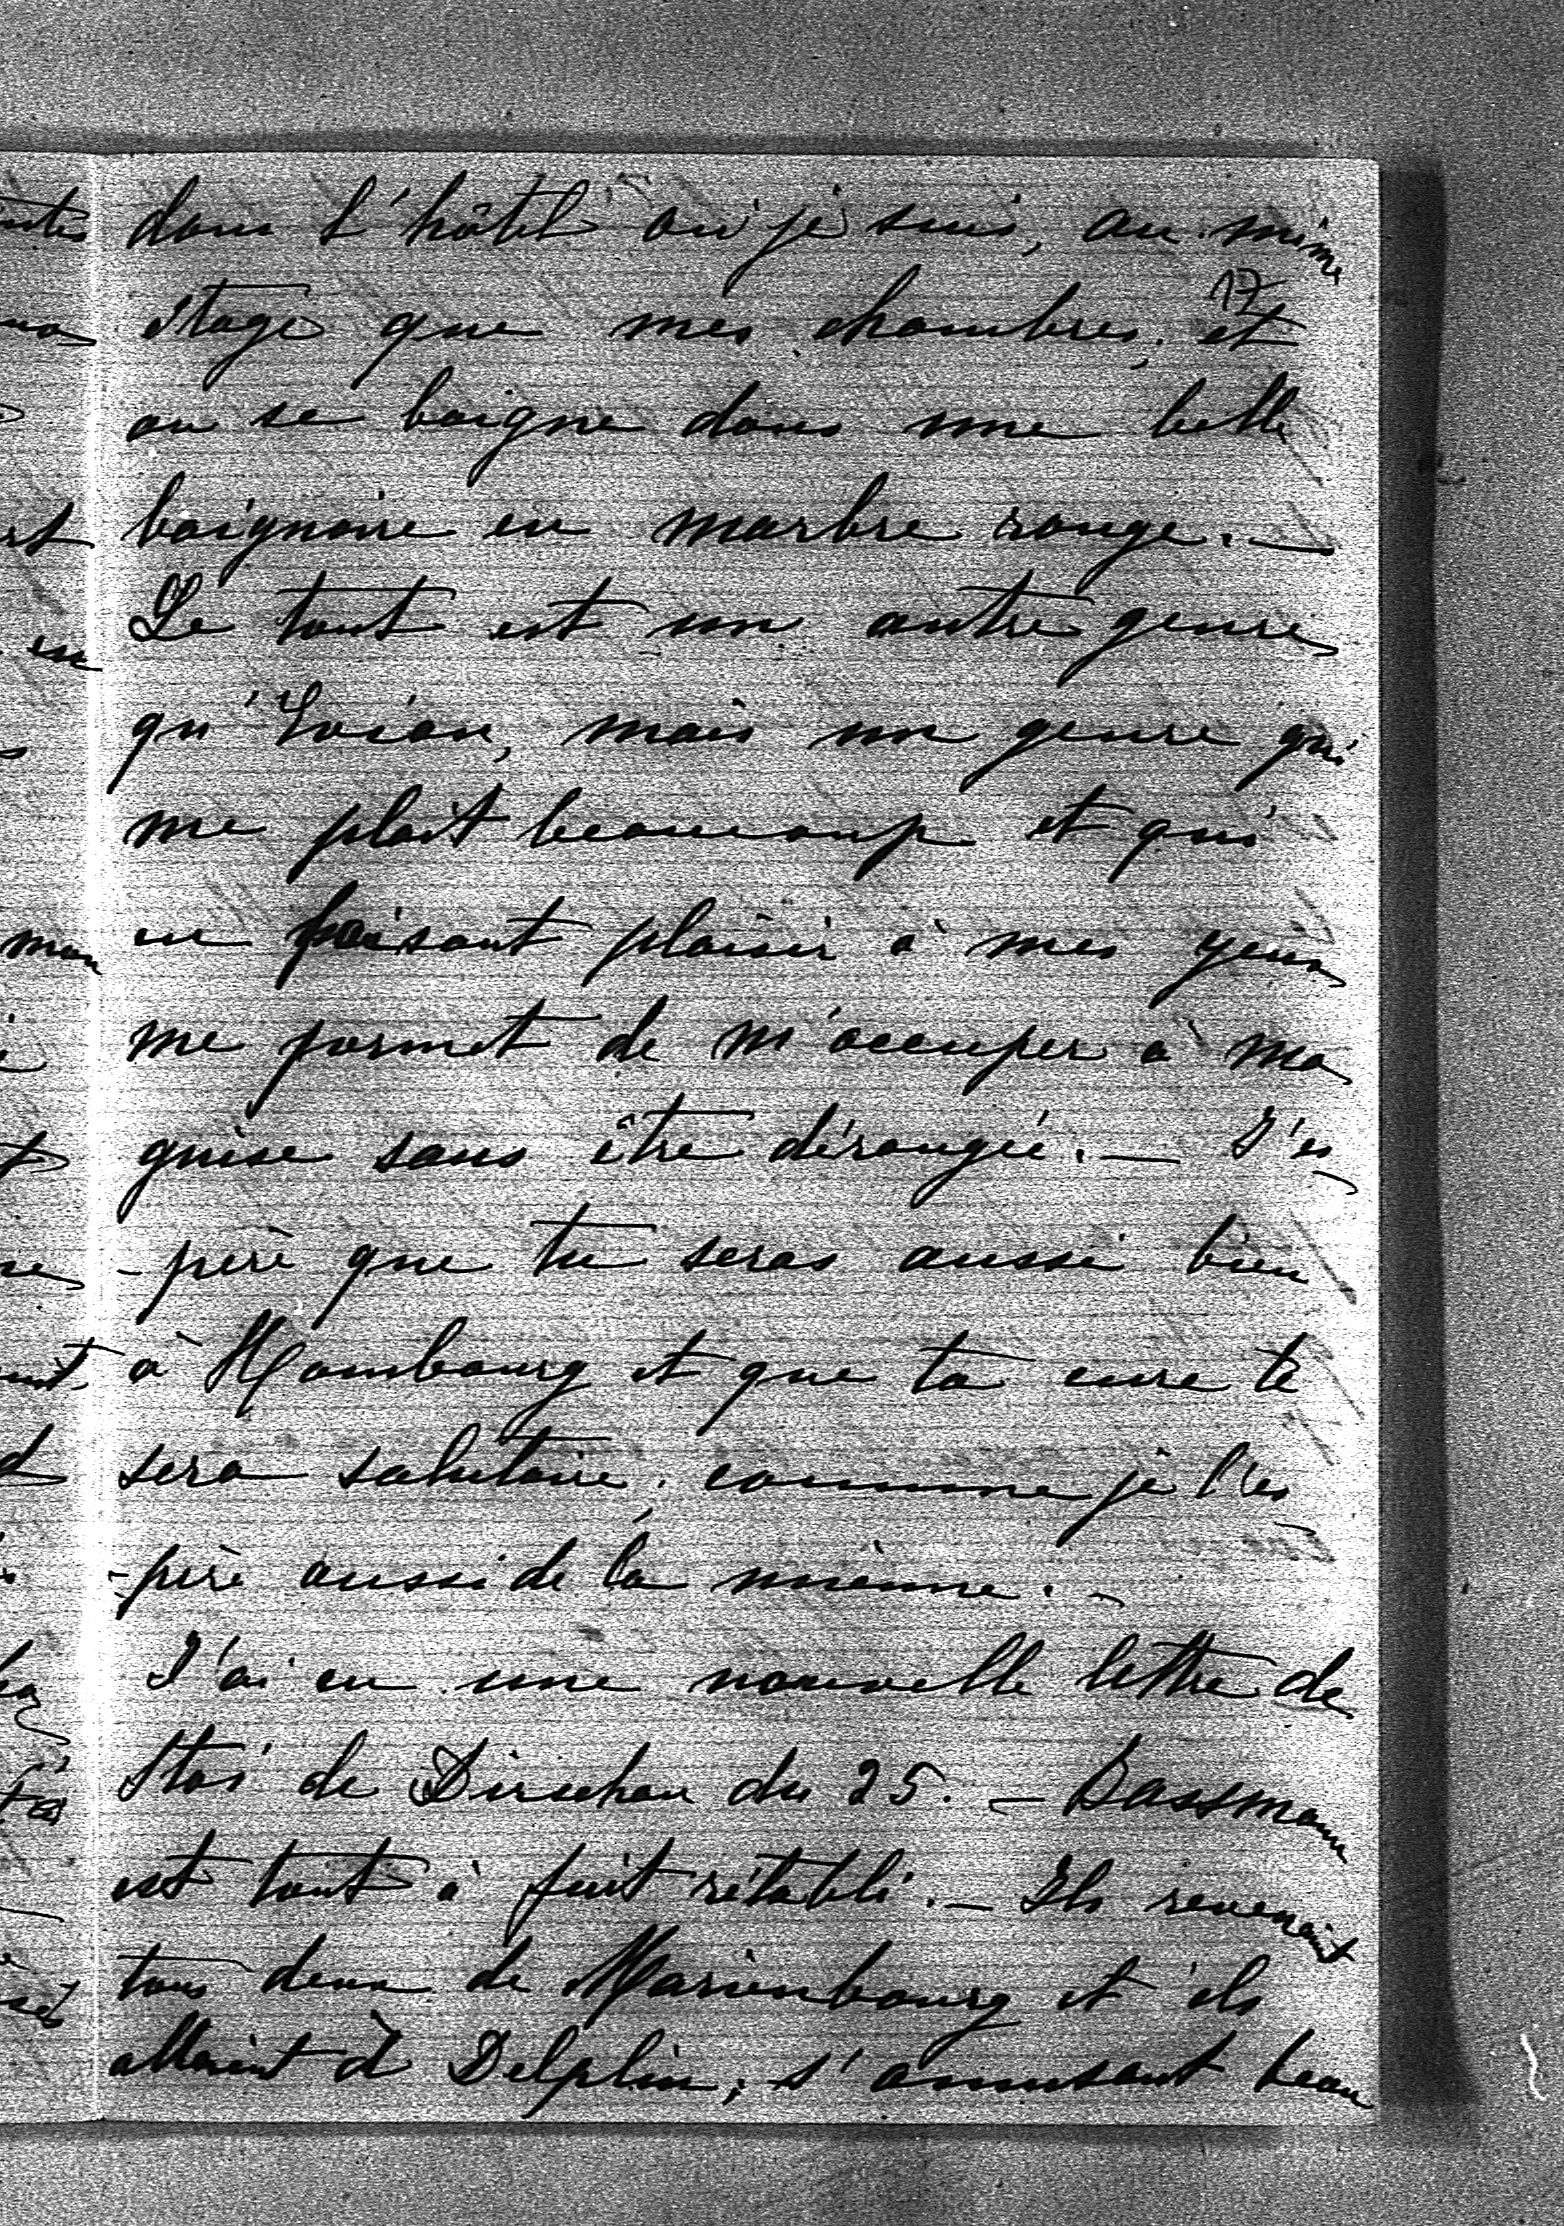 dans l'hôtel où je suis, au même
17
étage que mes chambres, et
on se baigne dans une belle
baignoire en marbre rouge. —
Le tout est un autre genre
qu'Evian, mais un genre qui
me plait beaucoup et qui
en faisant plaisir à mes yeux
me permet de m'occuper à ma
guise sans être dérangée. — J'es
-père que tu seras aussi bien
à Hombourg et que ta cure te
sera salutaire, comme je l'es
-père aussi de la mienne. -
J'ai eu une nouvelle lettre de
Stas de Dirschau du 25. — Bassmann
est tout à fait rétabli. — Ils revenaient
tous deux de Marienbourg et ils
allaient à Pelplin, s'amusant beau